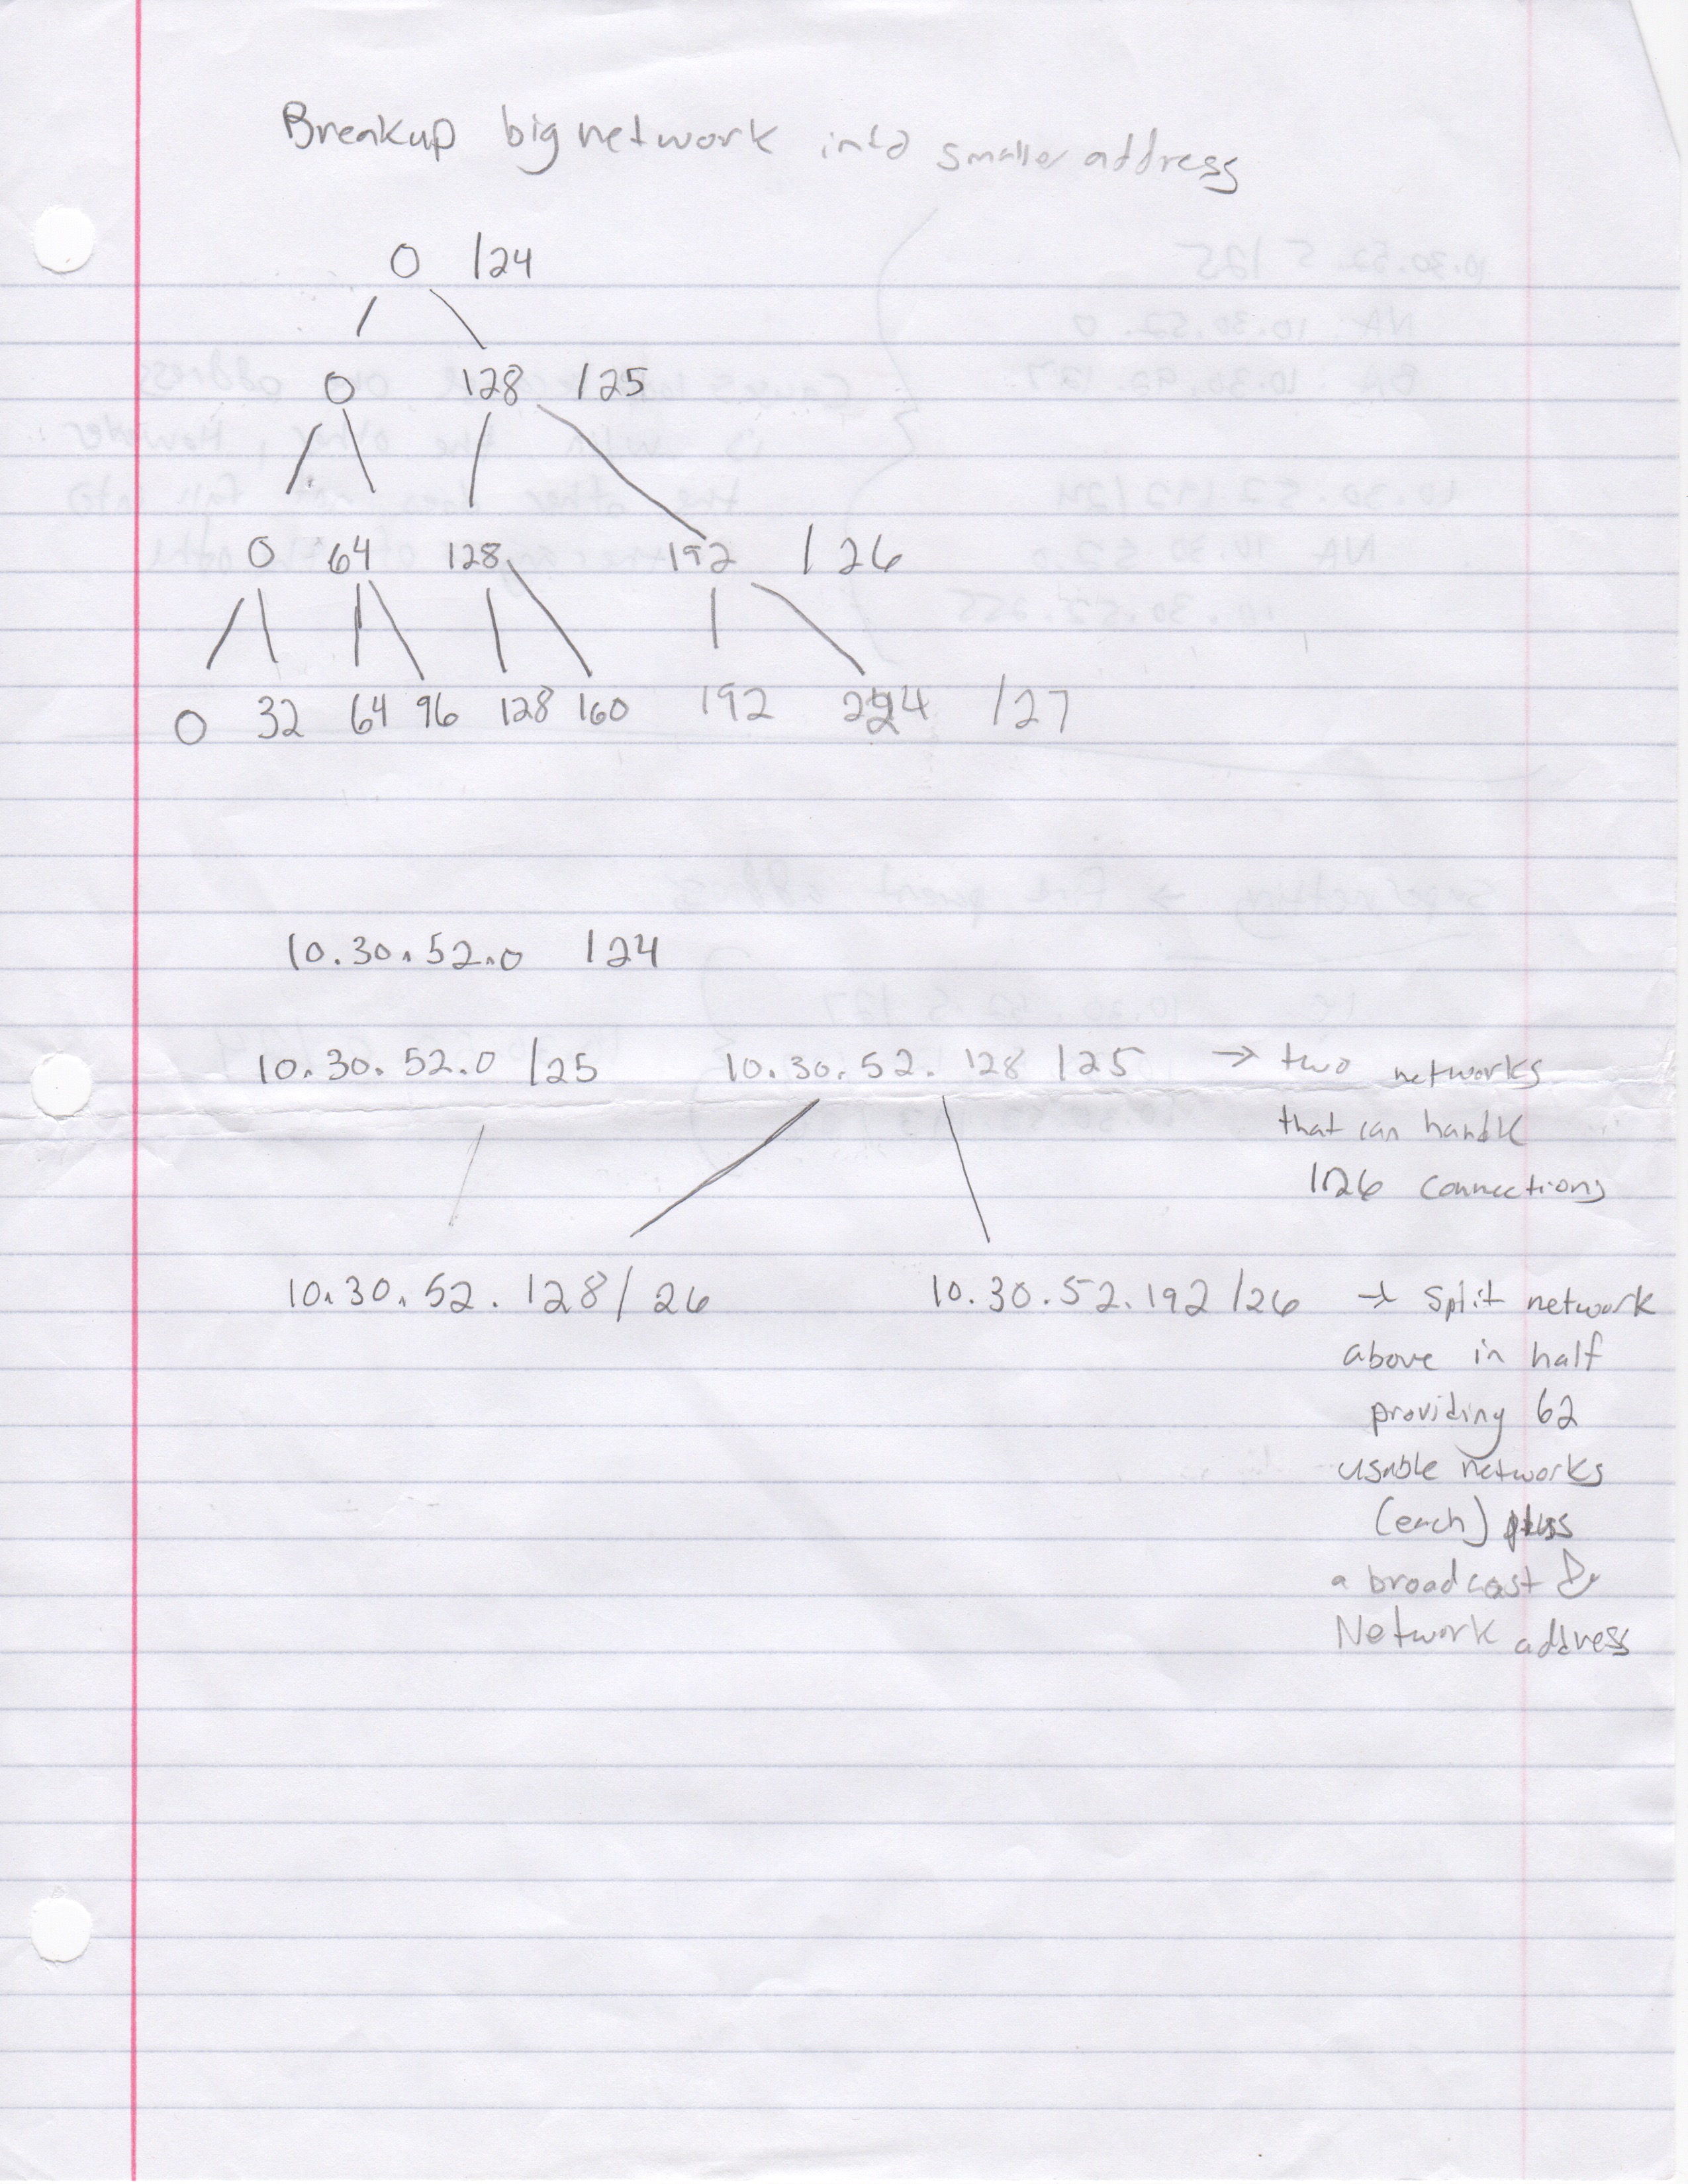 Breakup big network into smaller address
0 /24
0 128 /25
0 64 128 192 /26
0 32 64 96 128 160 192 224 /27
10.30.52.0 /24
10.30.52.0 /25 10.30.52.128 /25 → two networks
that can handle
126 connections
10.30.52.128/26 10.30.52.192/26 → split network
above in half
providing 62
usable networks
(each) plus
a broadcast &
Network address